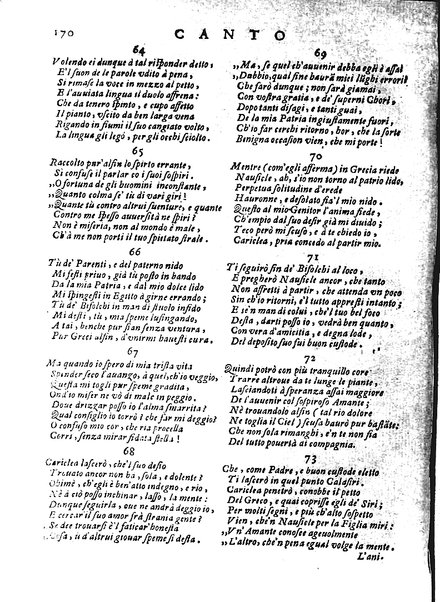 170 CANTO
64
Volendo ei dunque à tal risponder detto,
E'l suon de le parole vdito à pena,
Si rimase la voce in mezzo al petto,
E l'auuiata lingua il duolo affrena:
Che da tenero spinto, e cupo affetto
Il pianto, vscito da ben larga vena
Rigando in fiumi il suo cangiato volto,
La lingua gli legò, per gli occhi sciolto.
65
Raccolto pur'alfin lo spirto errante,
Si confuse il parlar co i suoi sospiri.
„O fortuna de gli huomini inconstante,
„Quanto colma se' tù di vari giri!
„Quante tù contra altrui suenture, e quante
Contro me spesso auuersità ne spiri?
Non è miseria, non al mondo è male,
Ch'à me non porti il tuo spietato strale.
66
Tù de' Parenti, e del paterno nido
Mi festi priuo, già tù posto in bando
Da la mia Patria, e dal mio dolce lido
Mi spingesti in Egitto à girne errando;
Tù de' Bifolchi in man di stuolo infido
Mi desti, tù, mia speme lusingando,
A tai, benche pur sian senza ventura,
Pur Greci alfin, d'vnirmi hauesti cura.
67
Ma quando io spero di mia trista vita
Spender seco l'auanzo, à quel, ch'io veggio,
Questa mi togli pur speme gradita,
Ond'io miser ne vò di male in peggio.
Doue drizzar posso io l'alma smarrita?
Qual consiglio io torrò? che far mi deggio?
O confuso mio cor, che ria procella
Corri, senza mirar fidata stella!
68
Cariclea lascerò, che'l suo desio
Trouato ancor non ha, sola, e dolente?
Ohimè, ch'egli è ben'atto indegno, e rio,
Nè à ciò posso inchinar, lasso, la mente:
Dunque seguirla, oue ne andrà deggio io,
E cercar il suo amor frà strania gente?
Se dee trouarsi è'l faticar honesta
Cosa, ù d'altrui giouar speme si desta.
69
„Ma, se quel ch'auuenir debba egli è assai
„Dubbio, qual fine haurà miei lũghi errori?
Che sarò dunque; non sarà giamai,
Con vostra gratia, e de' superni Chori,
Dopo tanti disagi, e tanti guai,
De la mia Patria ingiustamente fuori,
Ch'io far cerchi ritorno, hor, che la sorte
Benigna occasion vien, che mi porte!
70
Mentre (com'egli afferma) in Grecia riede
Nausicle, ah, s'io non torno al patrio lido,
Perpetua solitudine d'erede
Hauronne, e desolato fia'l mio nido.
Questo al mio Genitor l'anima fiede,
Ch'empio dal suo desir già mi diuido;
Teco però mi scuso, e à te chiedo io,
Cariclea, pria concedo al partir mio.
71
Ti seguirò fin de' Bifolchi al loco,
E pregherò Nausicle ancor, che tanto
Non affretti à partir, che attenda vn poco
Sin ch'io ritorni, è'l tutto appresti intanto;
E te'n man di colui, che'l tuo bel foco
Desta, darti posso io, vedrà ben quanto,
Con vera amicitia, e con lingua degne,
Del deposito suo fui buon custode.
72
Quindi potrò con più tranquillo core
Trarre altroue da te lunge le piante,
Lasciandoti di speranza assai maggiore
De l'auuenir col sospiroso Amante:
Nè trouandolo alfin (tal rio dolore
Ne toglia il Ciel) scusa haurò pur bastãte:
Che non sola rimanghi, e'n te non sia
Del tutto pouertà di compagnia.
73
Che, come Padre, e buon custode eletto
Ti lasci in quel punto Calasiri.
Cariclea penetrò, conobbe il petto
Del Greco, e quai coprisse egli de' Siri;
Per molti segni, e più ch'alto sospetto
Vien, ch'è Nausicle per la Figlia miri:
„Vn'Amante conosce ageuolmente
„L'altro, ch'è'n pena egual volge la mente.
L'ani-